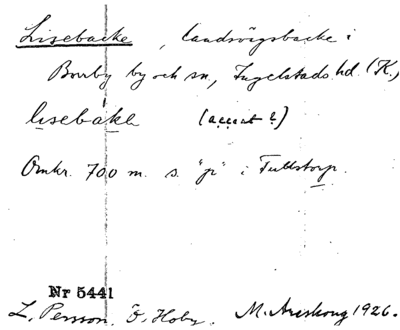 Lisebacke, landsvägsbacke i
Borrby by och sn, Ingelstads hd. (K.)
lisebake (accent?)
Omkr. 700 m. s. "p" i Tullstorp.
Nr 5441
L. Persson, Ö. Hoby. M. Areskoug 1926.